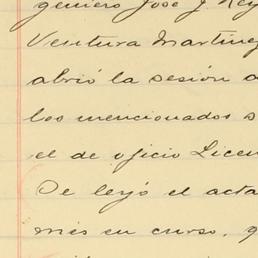 geniero José J. Rey
Ventura Martínez
abrió la sesión a
los mencionados s
el de oficio Licen
Se leyó el acta
mes en curso, q